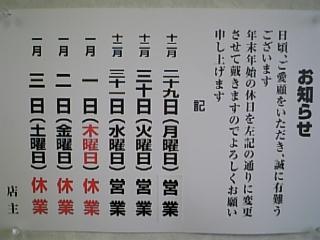 お知らせ
日頃、ご愛顧をいただき、誠に有難う
ございます
年末年始の休日を左記の通りに変更
させて戴きますのでよろしくお願い
申し上げます
記
十二月 二十九日(月曜日)営業
十二月 三十日(火曜日)営業
十二月 三十一日(水曜日)営業
一月 一日(木曜日)休業
一月 二日(金曜日)休業
一月 三日(土曜日)休業
店主